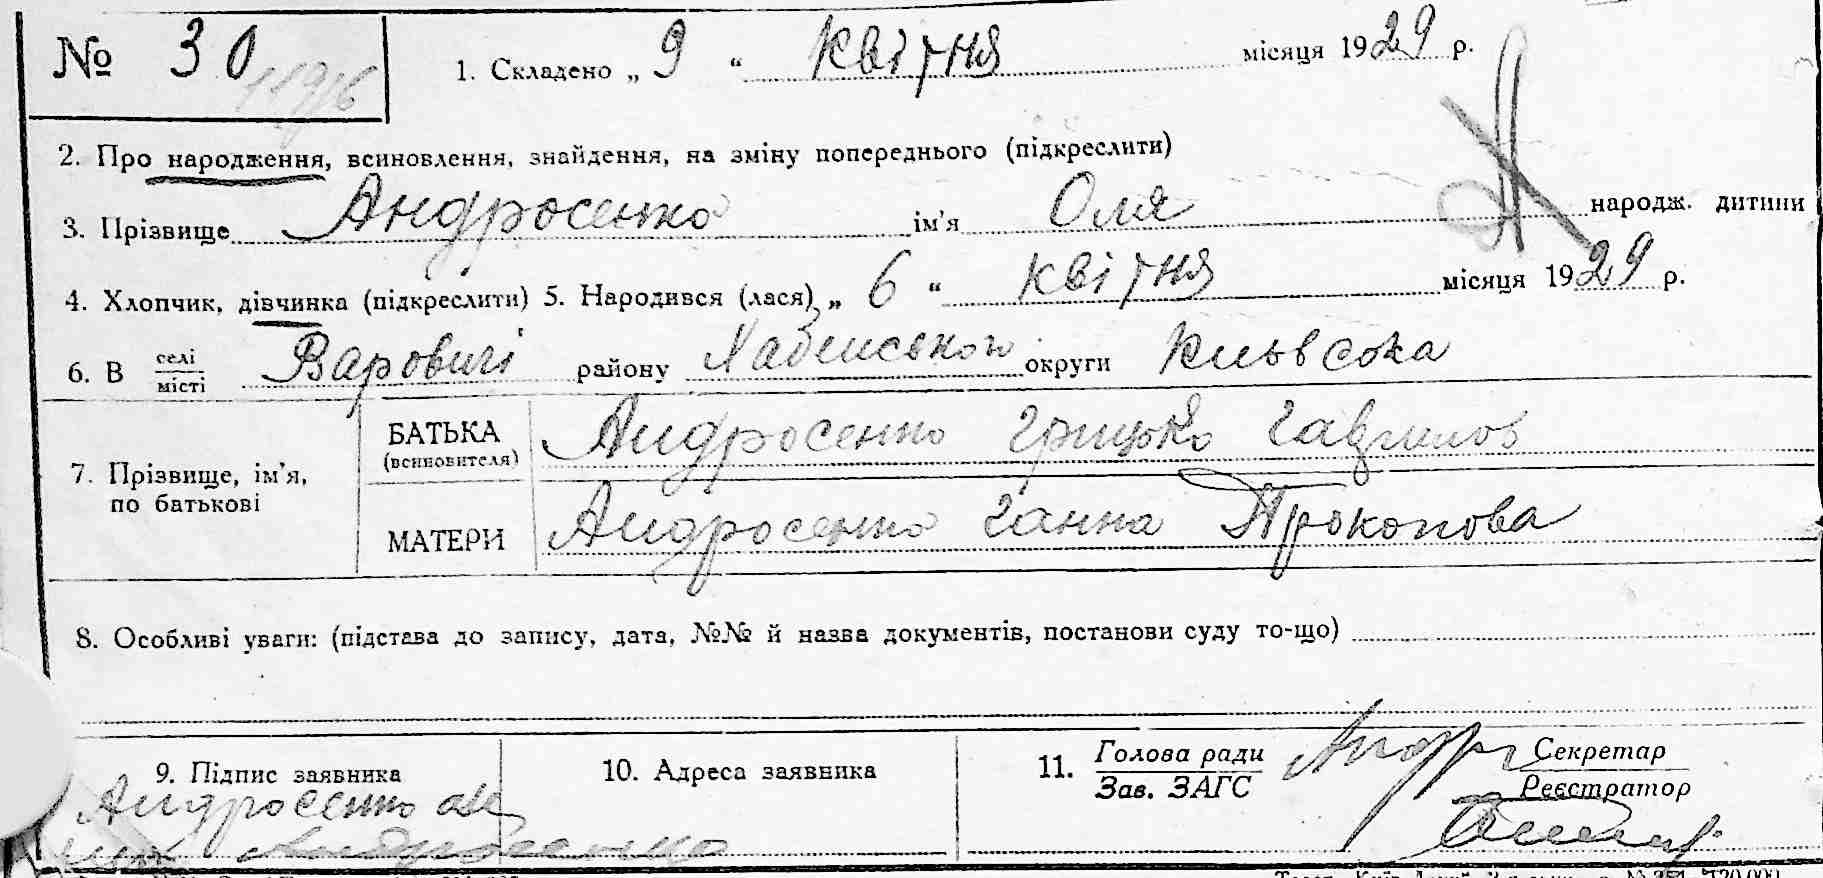 № 30
119/6
1. Складено „ 9 “ квітня місяця 1929 р.
2. Про народження, всиновлення, знайдення, на зміну попереднього (підкреслити)
3. Прізвище Андросенко ім’я Оля народж. дитини
4. Хлопчик, дівчинка (підкреслити) 5. Народився (лася) „ 6 “ квітня місяця 1929 р.
6. В селі/місті Варовичі району Хабенського округи Київсока
7. Прізвище, ім’я, по батькові
БАТЬКА (всиновителя) Андросенко Грицько Гаврилов
МАТЕРИ Андросенко Ганна Прокопова
8. Особливі уваги: (підстава до запису, дата, №№ й назва документів, постанови суду то-що)
9. Підпис заявника
Андросенко
Андросенко
10. Адреса заявника
11. Голова ради
Зав. ЗАГС
Секретар
Реєстратор